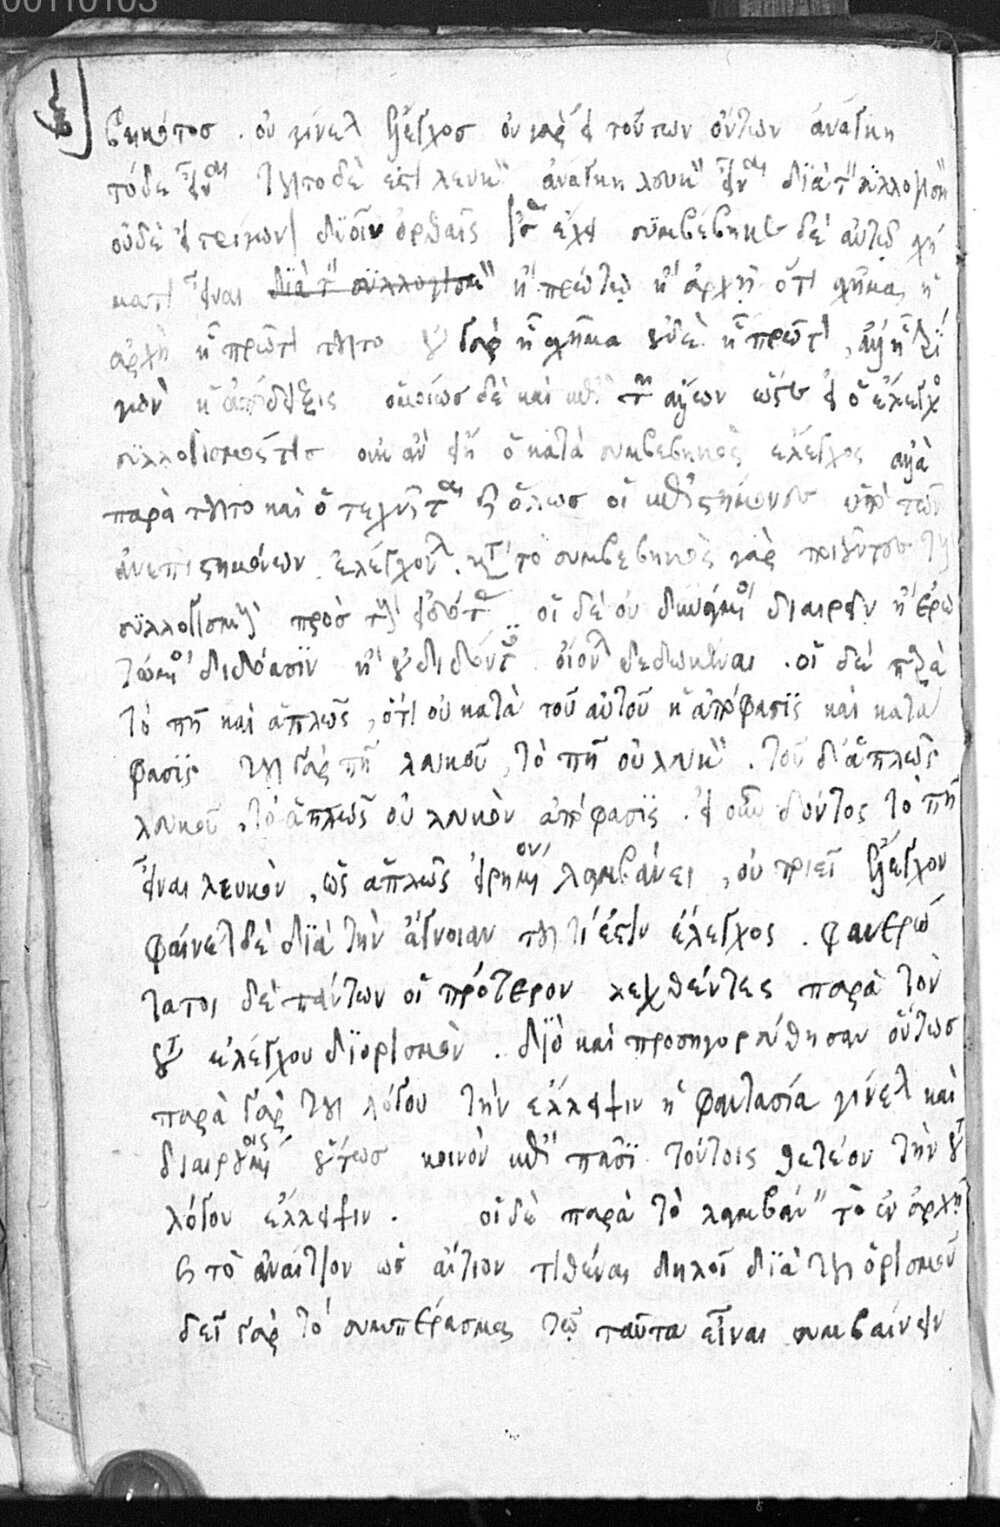 βηκότος . οὐ γίνεται ἔλεγχος οὐ γὰρ εἰ τούτων ὄντων ἀνάγκη
τόδε εἶναι τοῦτο δέ ἐστι λευκὸν ἀνάγκη λευκὸν εἶναι διὰ τὸν συλλογισμὸν
οὐδὲ εἰ τρίγωνον δυοῖν ὀρθαῖς ἴσας ἔχει συμβέβηκε δὲ αὐτῷ σχή
ματι εἶναι διὰ τὸν συλλογισμὸν ἢ πρώτῳ ἢ ἀρχῇ ὅτι σχῆμα ἢ
ἀρχὴ ἢ πρῶτον τοῦτο οὐ γὰρ ᾗ σχῆμα οὐδὲ ᾗ πρῶτον , ἀλλ' ᾗ τρί
γωνον ἡ ἀπόδειξις ὁμοίως δὲ καὶ ἐπὶ τῶν ἄλλων ὥστε εἰ ὁ ἔλεγχος
συλλογισμός τις οὐκ ἂν εἴη ὁ κατὰ συμβεβηκὸς ἔλεγχος ἀλλὰ
παρὰ τοῦτο καὶ ὁ τεχνῖται καὶ ὅλως οἱ ἐπιστήμονες ὑπὸ τῶν
ἀνεπιστημόνων ἐλέγχονται . κατὰ τὸ συμβεβηκὸς γὰρ ποιοῦνται τοὺς
συλλογισμοὺς πρὸς τοὺς εἰδότας .. οἱ δὲ οὐ δυνάμενοι διαιρεῖν ἢ ἐρω
τώμενοι διδόασιν ἢ οὐ διδόντες οἴονται δεδωκέναι . οἱ δὲ παρὰ
τὸ πῇ καὶ ἁπλῶς , ὅτι οὐ κατὰ τοῦ αὐτοῦ ἡ ἀπόφασις καὶ κατά
φασις τοῦ γὰρ πῇ λευκοῦ , τὸ πῇ οὐ λευκὸν . τοῦ δ' ἁπλῶς
λευκοῦ , τὸ ἁπλῶς οὐ λευκὸν ἀπόφασις . εἰ οὖν δόντος τὸ πῇ
εἶναι λευκὸν , ὡς ἁπλῶς εἰρημένον λαμβάνει , οὐ ποιεῖ ἔλεγχον
φαίνεται δὲ διὰ τὴν ἄγνοιαν τοῦ τί ἐστὶν ἔλεγχος . φανερώ
τατοι δὲ πάντων οἱ πρότερον λεχθέντες παρὰ τὸν
τοῦ ἐλέγχου διορισμὸν . διὸ καὶ προσηγορεύθησαν οὕτως
παρὰ γὰρ τοῦ λόγου τὴν ἔλλειψιν ἡ φαντασία γίνεται καὶ
διαιρουμένοις οὕτως κοινὸν ἐπὶ πᾶσι τούτοις θετέον τὴν τοῦ
λόγου ἔλλειψιν . οἱ δὲ παρὰ τὸ λαμβάνειν τὸ ἐν ἀρχῇ
καὶ τὸ ἀναίτιον ὡς αἴτιον τιθέναι δηλοῖ διὰ τοῦ ὁρισμοῦ
δεῖ γὰρ τὸ συμπέρασμα τῷ ταῦτα εἶναι συμβαίνειν